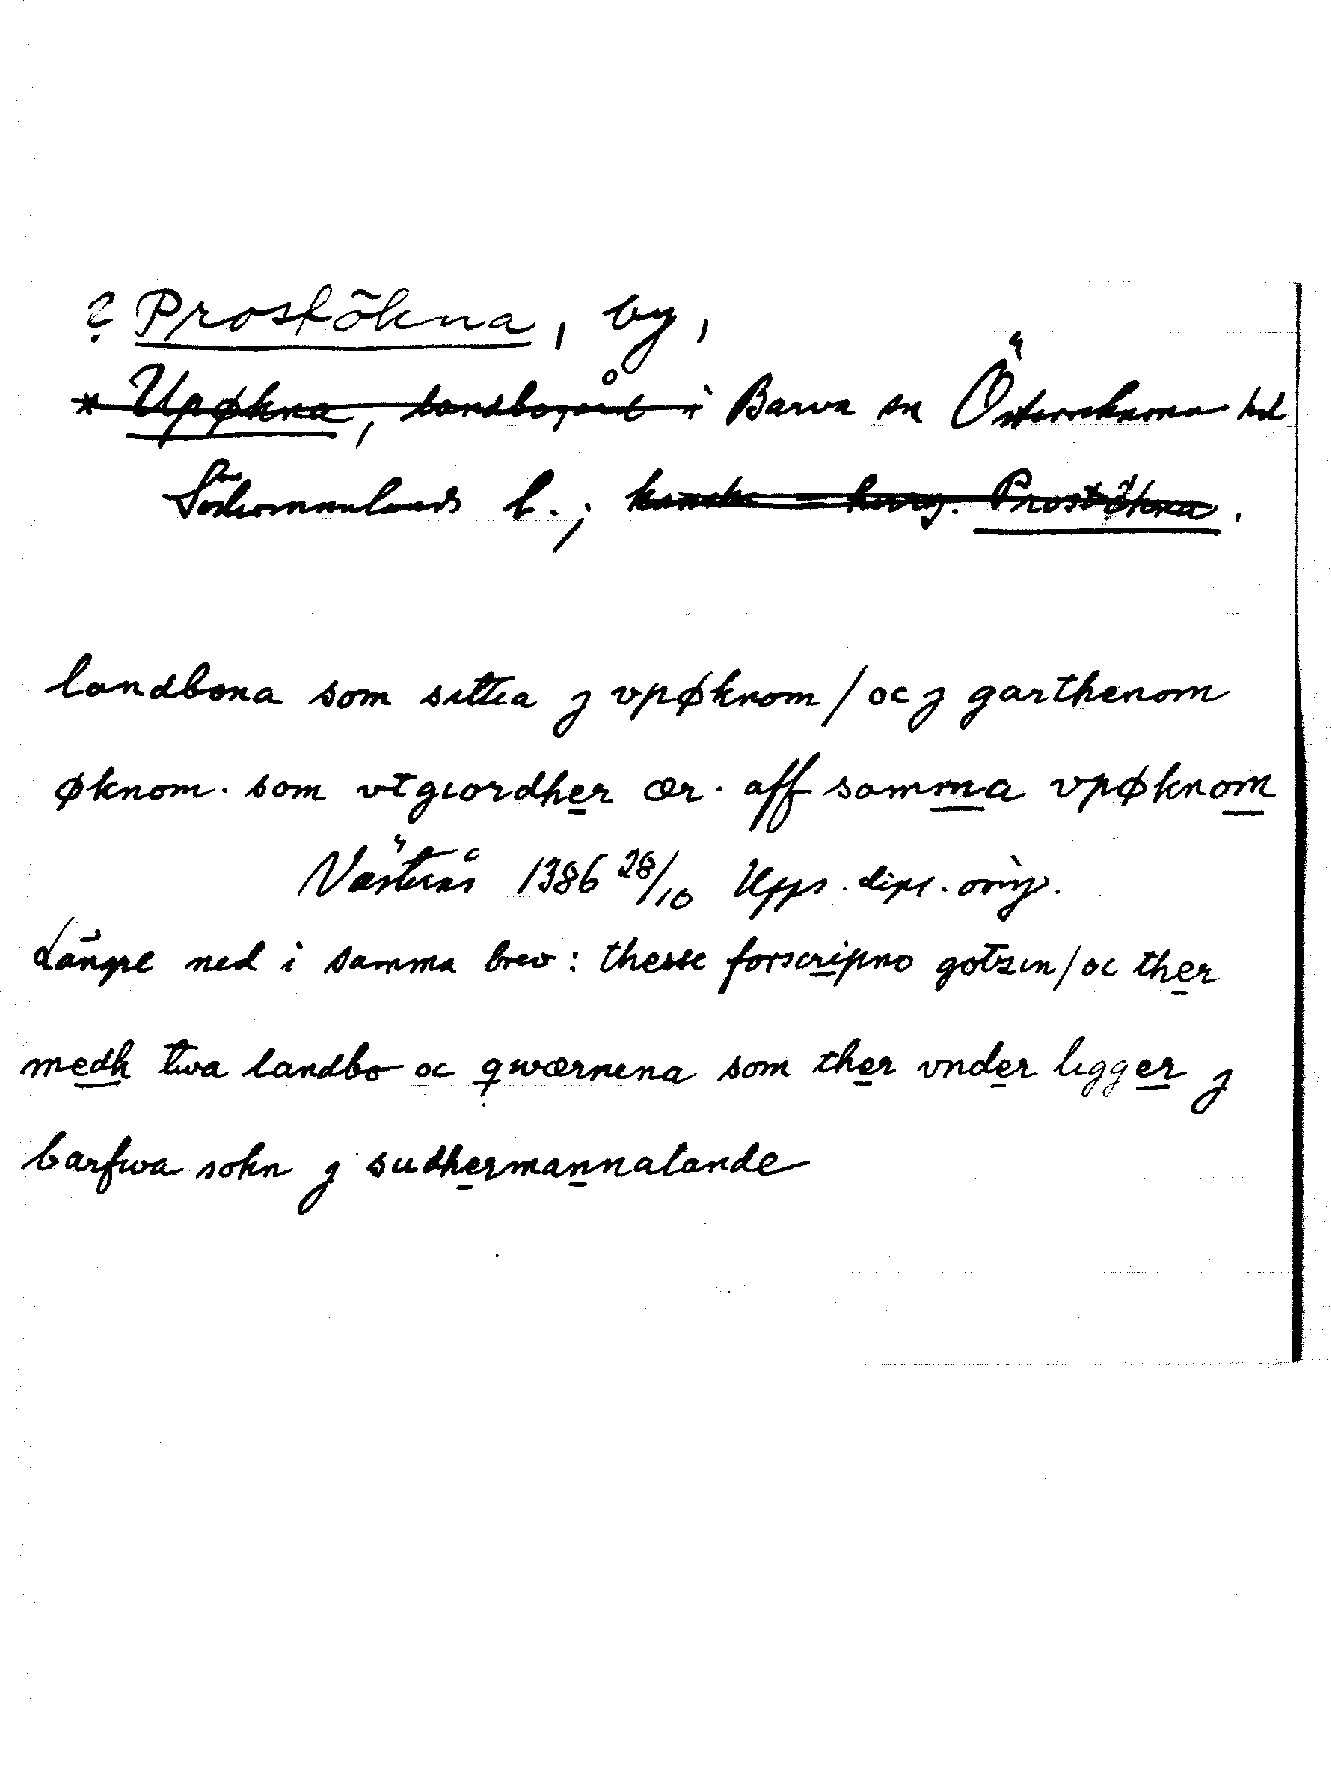 ? Prostökna, by,
* Upøkna, landbogård i Barva sn Österrekarne hd
Södermanlands l.; kanske = herrg. Prostökna.
landbona som sittia j vpøknom / oc j garthenom
øknom. som vtgiordher ær. aff samma vpøknom
Västerås 1386 28/10 Upps. dipl. orig.
Längre ned i samma brev: thesse forscripno gotzin / oc ther
medh twa landbo oc qwærnena som ther vnder ligger j
barfwa sokn j sudhermannalande